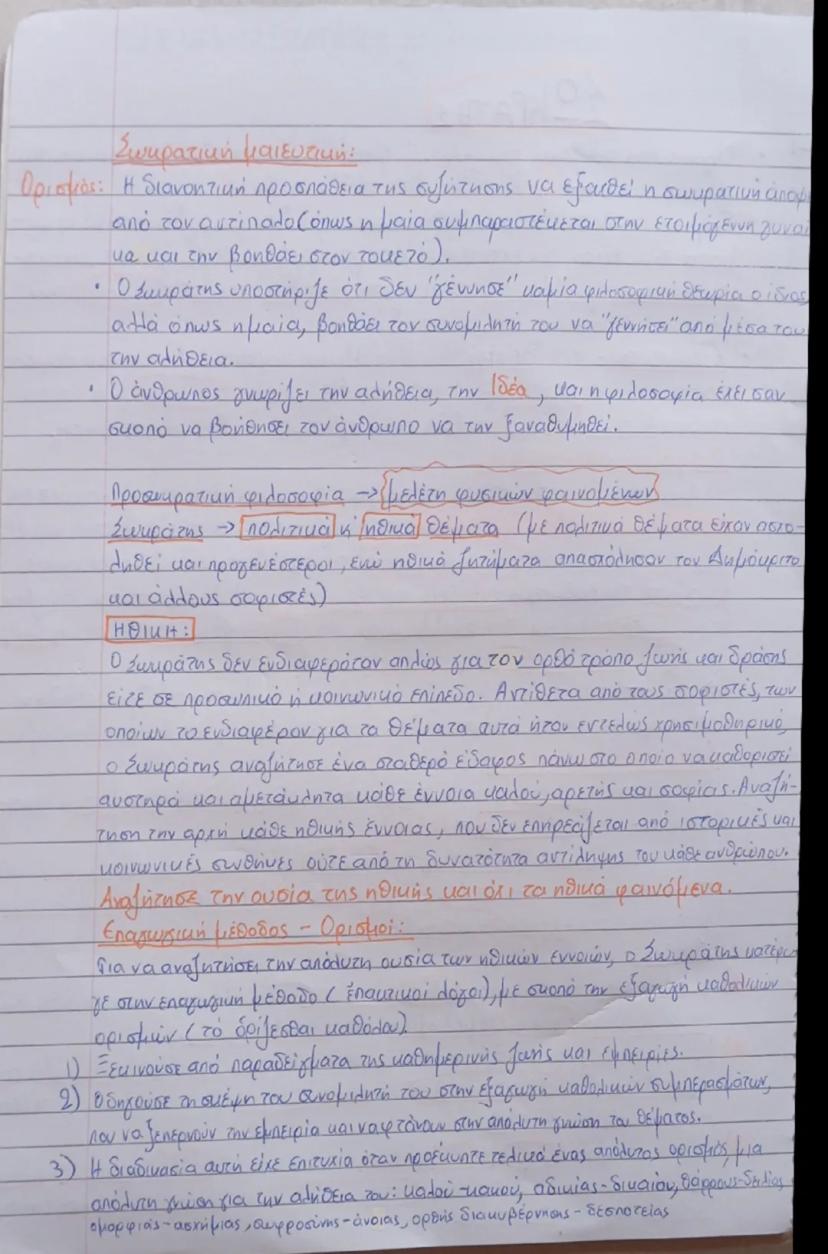 Σωκρατική μαιευτική:
Ορισμός: Η διανοητική προσπάθεια της συζήτησης να εξαχθεί η σωκρατική άποψ
από τον αντίπαλο (όπως η μαία συμπαραστέκεται στην ετοιμόγεννη γυναί
κα και την βοηθάει στον τοκετό).
• Ο Σωκράτης υποστήριζε ότι δεν "γέννησε" καμία φιλοσοφική θεωρία ο ίδιος
αλλά όπως η μαία, βοηθάει τον συνομιλητή του να "γεννήσει" από μέσα του
την αλήθεια.
• Ο άνθρωπος γνωρίζει την αλήθεια, την Ιδέα, και η φιλοσοφία έχει σαν
σκοπό να βοήθησει τον άνθρωπο να την ξαναθυμηθεί.
Προσωκρατική φιλοσοφία → μελέτη φυσικών φαινομένων
Σωκράτης → πολιτικά ή ηθικά θέματα (με πολιτικά θέματα είχαν ασχο-
ληθεί και προγενέστεροι, ενώ ηθικά ζητήματα απασχόλησαν τον Δημόκριτο
και άλλους σοφιστές)
ΗΘΙΚΗ:
Ο Σωκράτης δεν ενδιαφερόταν απλώς για τον ορθό τρόπο ζωής και δράσης
είτε σε προσωπικό ή κοινωνικό επίπεδο. Αντίθετα από τους σοφιστές, των
οποίων το ενδιαφέρον για τα θέματα αυτά ήταν εντελώς χρησιμοθηρικό,
ο Σωκράτης αναζήτησε ένα σταθερό έδαφος πάνω στο οποίο να καθοριστεί
αυστηρά και αμετάκλητα κάθε έννοια καλού, αρετής και σοφίας. Αναζή-
τηση την αρχή κάθε ηθικής έννοιας, που δεν επηρεάζεται από ιστορικές και
κοινωνικές συνθήκες ούτε από τη δυνατότητα αντίληψης του κάθε ανθρώπου.
Αναζήτησε την ουσία της ηθικής και όχι τα ηθικά φαινόμενα.
Επαγωγική μέθοδος - Ορισμοί:
Για να αναζητήσει την απόλυτη ουσία των ηθικών εννοιών, ο Σωκράτης κατέφυ
γε στην επαγωγική μέθοδο (ἐπακτικοί λόγοι), με σκοπό την εξαγωγή καθολικών
ορισμών (τό ὁρίζεσθαι καθόλου)
1) Ξεκινούσε από παραδείγματα της καθημερινής ζωής και εμπειρίες.
2) Οδηγούσε τη σκέψη του συνομιλητή του στην εξαγωγή καθολικών συμπερασμάτων,
που να ξεπερνούν την εμπειρία και να φτάνουν στην απόλυτη γνώση του θέματος.
3) Η διαδικασία αυτή είχε επιτυχία όταν προέκυπτε τελικά ένας απόλυτος ορισμός, μια
απόλυτη γνώση για την αλήθεια του: καλού-κακού, αδικίας-δικαίου, θάρρους-δειλίας
ομορφιάς-ασχήμιας, σωφροσύνης-άνοιας, ορθής διακυβέρνησης-δεσποτείας